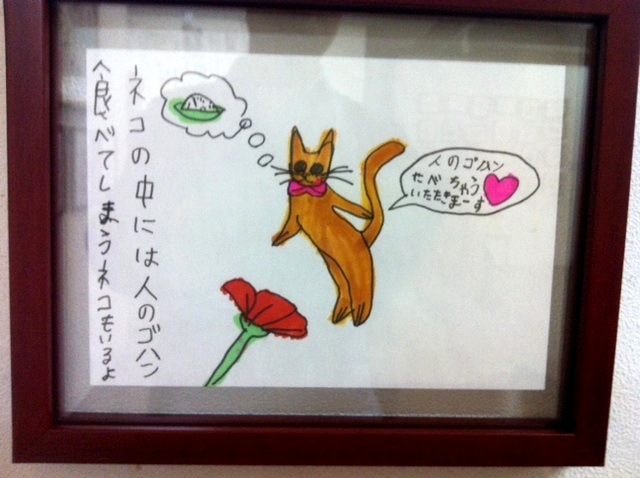 ネコの中には人のゴハン
食べてしまうネコもいるよ
人のゴハン
たべちゃう
いただきまーす